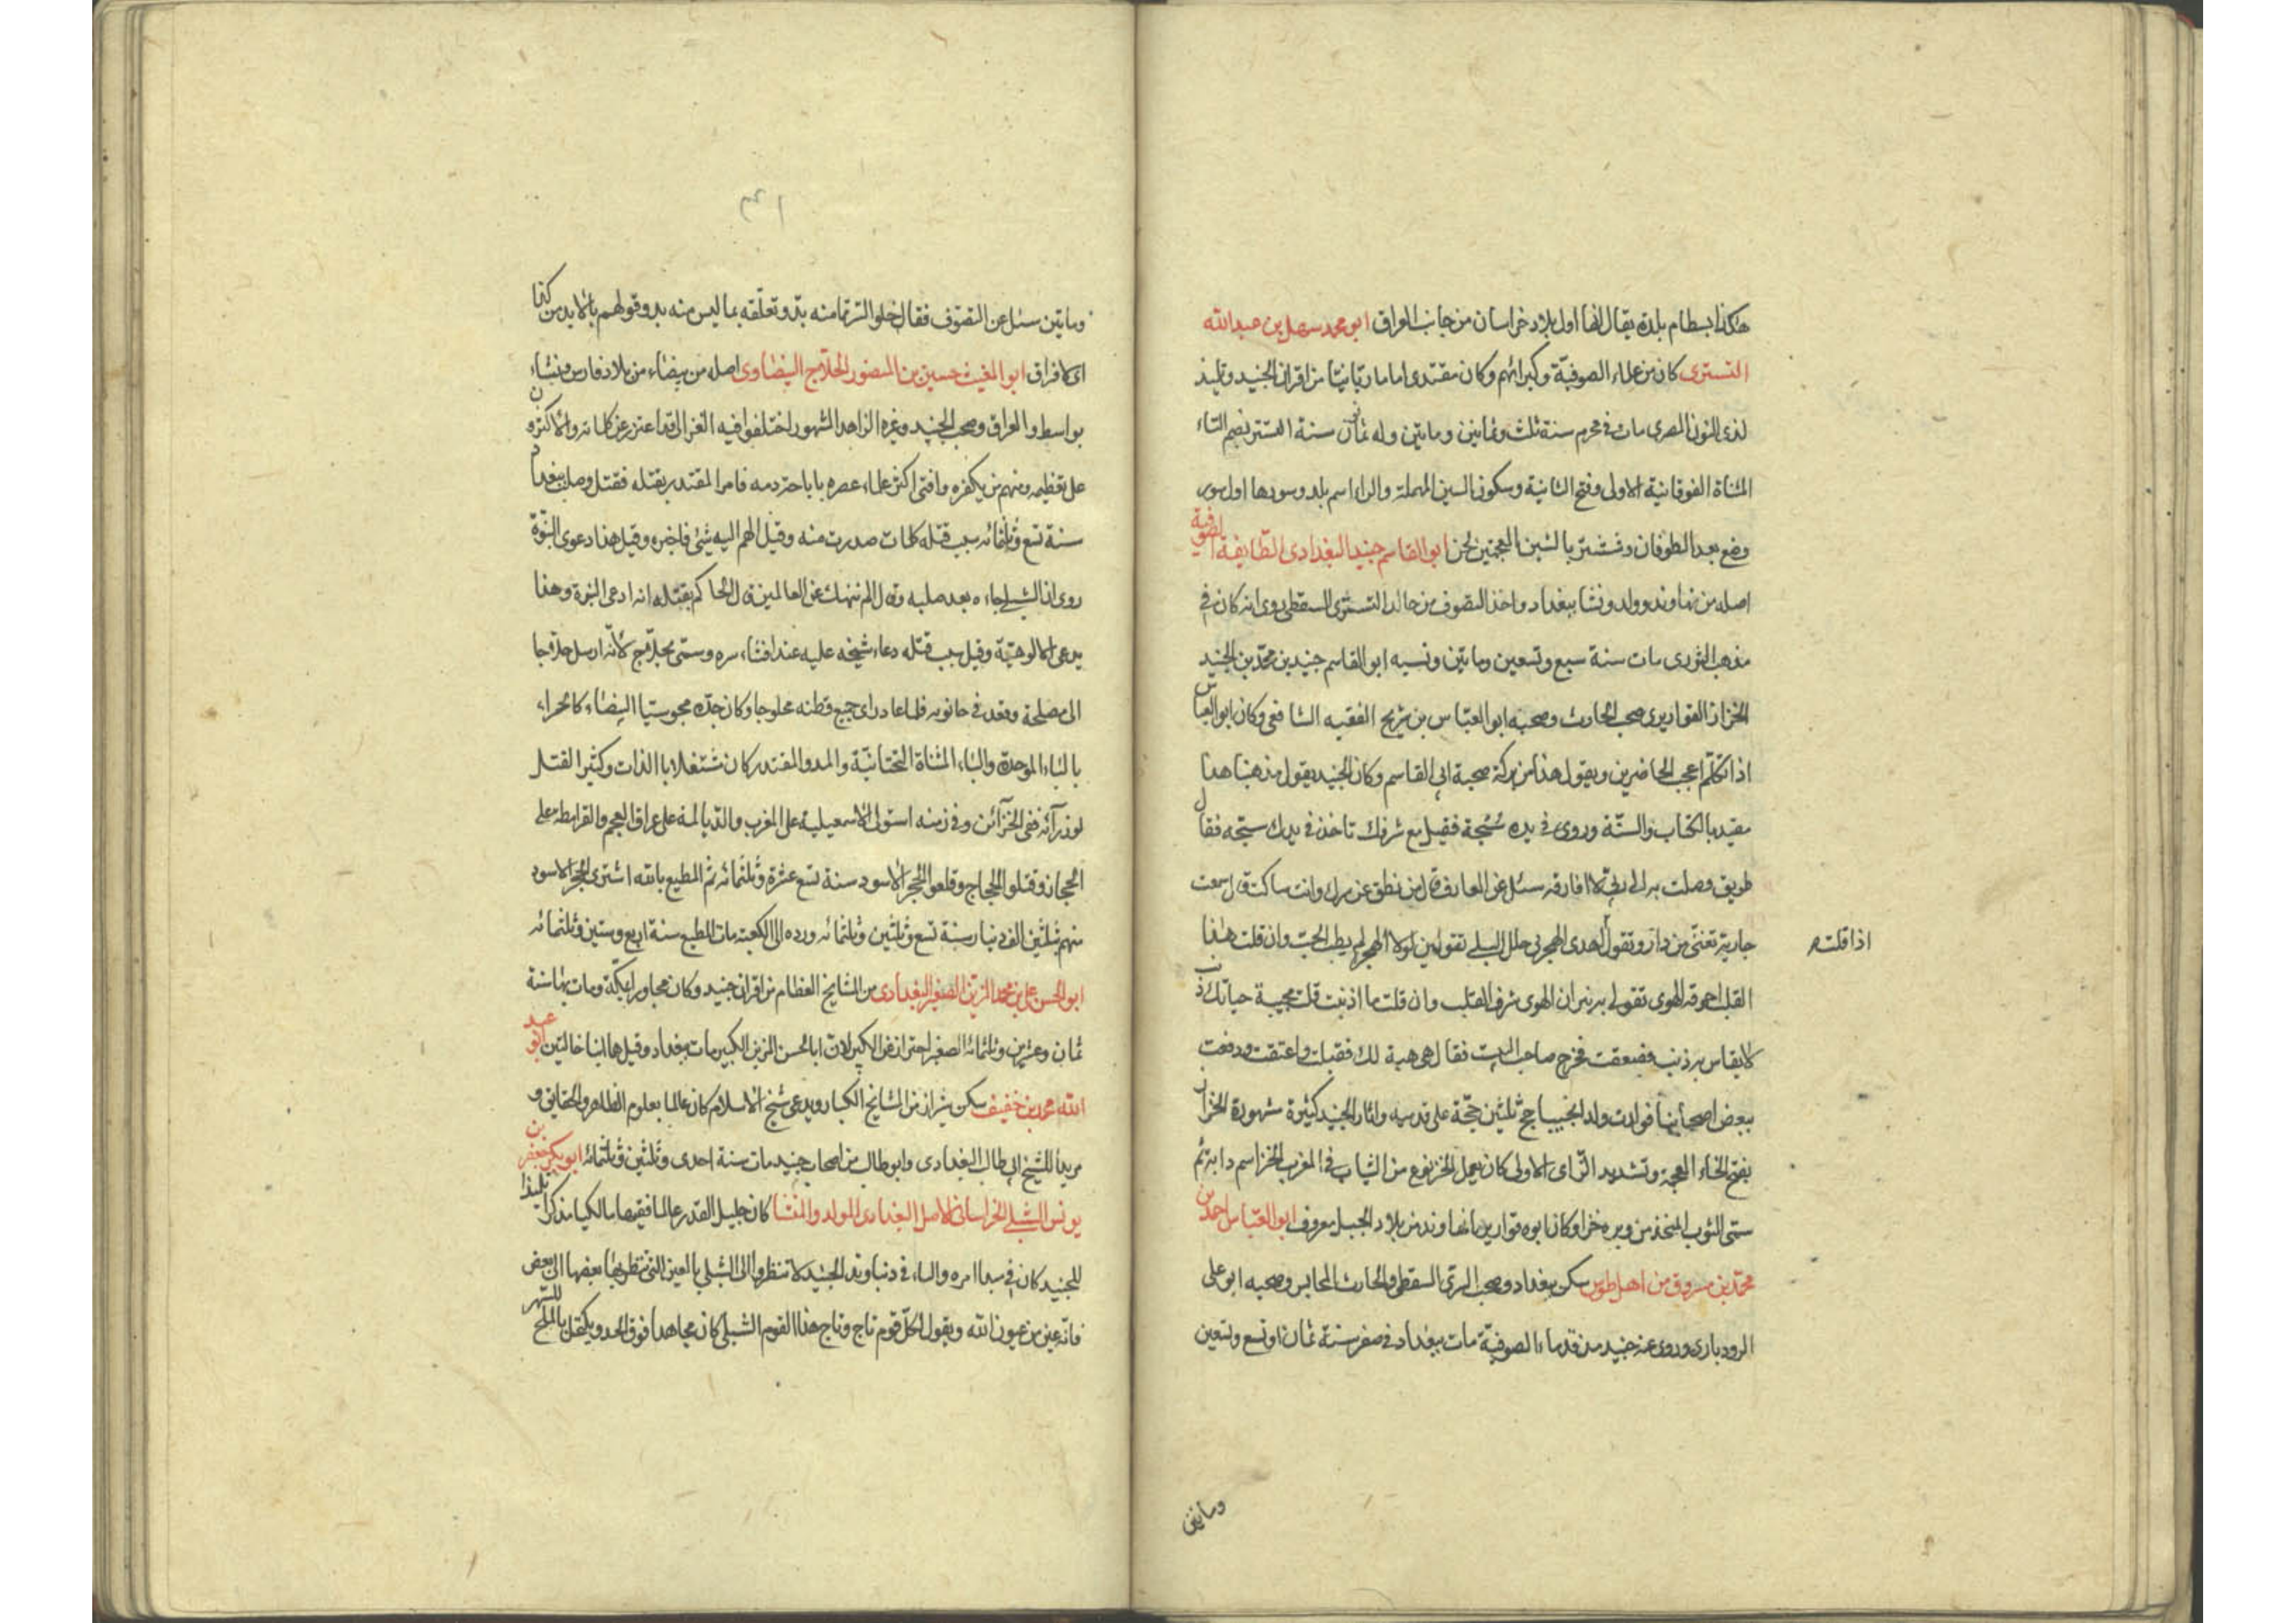 هكذا بسطام بلدة يقال انها اول بلاد خراسان من جانب العراق ابو محمد سهل بن عبد الله
التستري كان من علماء الصوفية وكبرائهم وكان مقتدى اماما ربانيا من اقران الجنيد وتلميذ
لذى النون المصرى مات فى محرم سنة ثلث وثمانين وماتين وله ثمانون سنة التستر بضم التاء
المثناة الفوقانية الاولى وفتح الثانية وسكون السين المهملة والراء اسم بلد وسورها اول سور
وضع بعد الطوفان وششتر بالشين المعجمتين لحن ابو القاسم جنيد البغدادى الطايفة الصوفية
اصله من نهاوند وولد ونشا ببغداد واخذ التصوف من خاله السرى السقطى روى انه كان فى
مذهب الثورى مات سنة سبع وتسعين وماتين ونسبه ابو القاسم جنيد بن محمد بن الجنيد
الخزاز القواريرى صحب الحارث وصحبه ابو العباس بن شريح الفقيه الشافعى وكان ابو العباس
اذا تكلم اعجب الحاضرين ويقول هذا من بركة صحبة ابى القاسم وكان الجنيد يقول مذهبنا هذا
مقيد بالكتاب والسنة وروى فى يده سبحة فقيل مع شرفك تاخذ فى يدك سبحه فقال
طريق وصلت به الى ربى لا افارقه سئل عن العارف قال من نطق عن سرك وانت ساكت قال سمعت
جارية تغنى من دار وتقول اهدى الهجر لى حلل البلى تقولين لولا الهجر لم يطب الحب وان قلت هذا
اذا قلت
القلب احرقه الهوى تقولى بنيران الهوى شرف القلب وان قلت ما اذنبت قلت مجيبة حياتك ذنب
لا يقاس به ذنب فصعقت فخرج صاحب البيت فقال هى هبة لك فقبلت واعتقت ودفعت
ببعض اصحابنا فولدت ولدا نجيبا حج ثلثين حجة على قدميه واثار الجنيد كثيرة مشهورة الخزاز
بفتح الخاء المعجمة وتشديد الزاى الاولى كان يعمل الخز نوع من الثياب فى المغرب الخز اسم دابة ثم
سمى الثوب المتخذ من وبره خزا وكان ابوه قواريريا نهاوند من بلاد الجبل معروف ابو العباس احمد بن
محمد بن مسروق من اهل طوس سكن ببغداد وصحب السرى السقطى والحارث المحاسبى وصحبه ابو على
الرودبارى وروى عنه جنيد من قدماء الصوفية مات ببغداد فى صفر سنة ثمان او تسع وتسعين
وماتين
وماتين سئل عن التصوف فقال خلو السر مما منه بد وتعلقه بما ليس منه بد وقولهم
اى لا فراق ابو المغيث حسين بن المنصور الحلاج البيضاوى اصله من بيضاء من بلاد فارس ونشاء
بواسط والعراق وصحب الجنيد وغيره الزاهد المشهور اختلفوا فيه الغزالى قد اعتزر عن كلماته والاكثرون
على تعظيمه ومنهم من يكفره وافتى اكثر علماء عصره باباحة دمه فامر المقتدر بقتله فقتل وصلب ببغداد
سنة تسع وثلثمائه سبب قتله كلمات صدرت منه وقيل الهم اليه شئ فاخبره وقيل هذا دعوى النبوة
روى ان الشبلى جاءه بعد صلبه وقال الم ننهك عن العالمين قال الحاكم بقتله انه ادعى النبوة وهذا
يدعى الالوهية وقيل سبب قتله دعاء شيخه عليه عند افشاء سره وسمى بحلاج لانه ارسل حلاجا
الى مصلحة وقعد فى حانوته فلما عاد راى جميع قطنه محلوجا وكان جده مجوسيا البيضاء كالحمراء
بالباء الموحدة والياء المثناة التحتانية والمد والمقتدر كان مشتغلا باللذات وكثير القتل
لوزرائه ففى الخزائن وفى زمنه استولى الاسمعيلية على المغرب والديالمة على عراق العجم والقرامطة على
الحجاز وقتلوا الحجاج وقلعوا الحجر الاسود سنة تسع عشرة وثلثمائه ثم المطيع بالله اشترى الحجر الاسود
منهم بثلثين الف دينار سنة تسع وثلثين وثلثمائه ورده الى الكعبة مات المطيع سنة اربع وستين وثلثمائه
ابو الحسن على بن محمد المزين الصغير البغدادى من المشايخ العظام من اقران جنيد وكان مجاورا بمكة ومات بها سنة
ثمان وعشرين وثلثمائه الصغير احتراز عن الكبير لان ابا الحسن المزين الكبير مات ببغداد وقيل هما ابنا خالتين ابو عبد
الله محمد بن خفيف سكن شيراز من المشايخ الكبار ويدعى شيخ الاسلام كان عالما بعلوم الظاهر والحقايق و
مريدا للشيخ ابى طالب البغدادى وابو طالب من اصحاب جنيد مات سنة احدى وثلثين وثلثمائه ابو بكر جعفر بن
يونس الشبلى الخراسانى الاصل البغدادى المولد والمنشا كان جليل القدر عالما فقيها مالكيا مذكرا تلميذا
للجنيد كان فى مبدا امره واليا فى دنباوند الجنيد لا تنظروا الى الشبلى بالعين التى ينظر بها بعضها الى بعض
فانه عين من عيون الله ويقول لكل قوم تاج وتاج هذا القوم الشبلى كان مجاهدا فوق الحد ويكتحل بالملح للسهر